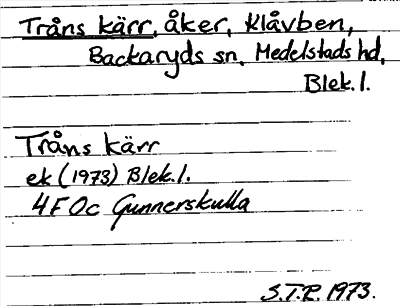 Tråns kärr, åker, Klåvben,
Backaryds sn, Medelstads hd,
Blek. l.
Tråns kärr
ek (1973) Blek. l.
4F 0c Gunnerskulla
S.T.R. 1973.